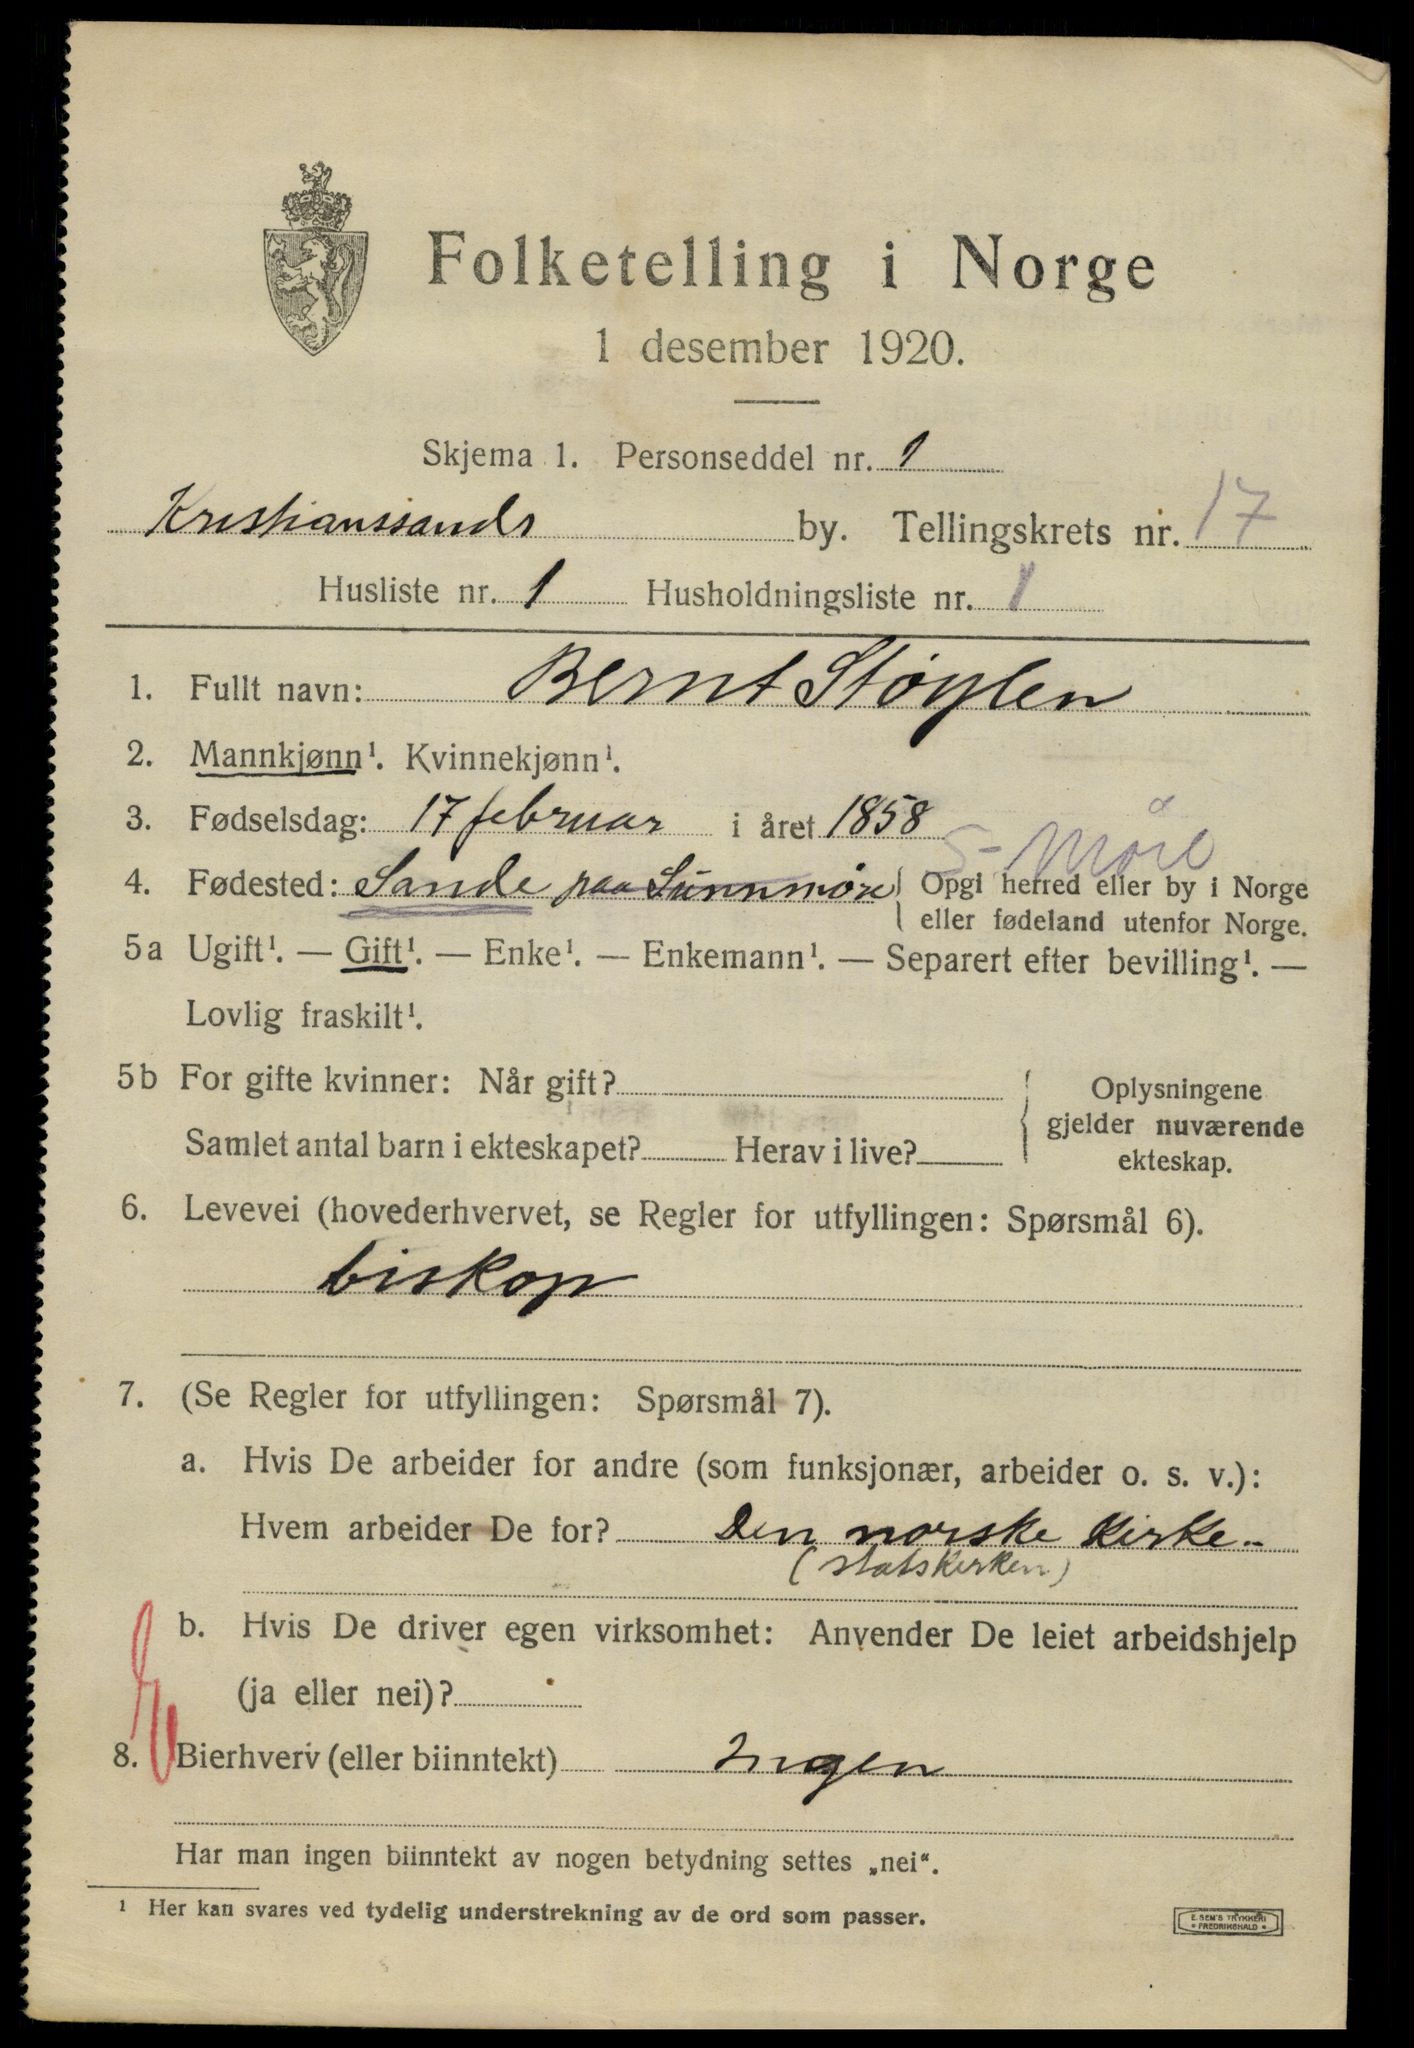 Folketelling i Norge
1 desember 1920.
Skjema 1. Personseddel nr. 1
Kristianssands by. Tellingskrets nr. 17
Husliste nr. 1 Husholdningsliste nr. 1
1. Fullt navn: Bernt Støylen
2. Mannkjønn¹. Kvinnekjønn¹.
3. Fødselsdag: 17 februar i året 1858
S-Møre
4. Fødested: Sande paa Sunnmøre { Opgi herred eller by i Norge
eller fødeland utenfor Norge.
5a Ugift¹. — Gift¹. — Enke¹. — Enkemann¹. — Separert efter bevilling¹. —
Lovlig fraskilt¹.
5b For gifte kvinner: Når gift?
Samlet antal barn i ekteskapet? Herav i live?
{ Oplysningene
gjelder nuværende
ekteskap.
6. Levevei (hovederhvervet, se Regler for utfyllingen: Spørsmål 6).
biskop
7. (Se Regler for utfyllingen: Spørsmål 7).
a. Hvis De arbeider for andre (som funksjonær, arbeider o. s. v.):
Hvem arbeider De for? Den norske kirke.
(statskirken)
b. Hvis De driver egen virksomhet: Anvender De leiet arbeidshjelp
(ja eller nei)?
8. Bierhverv (eller biinntekt) Ingen
Har man ingen biinntekt av nogen betydning settes „nei“.
¹ Her kan svares ved tydelig understrekning av de ord som passer.
E. SEM'S TRYKKERI
• FREDRIKSHALD •